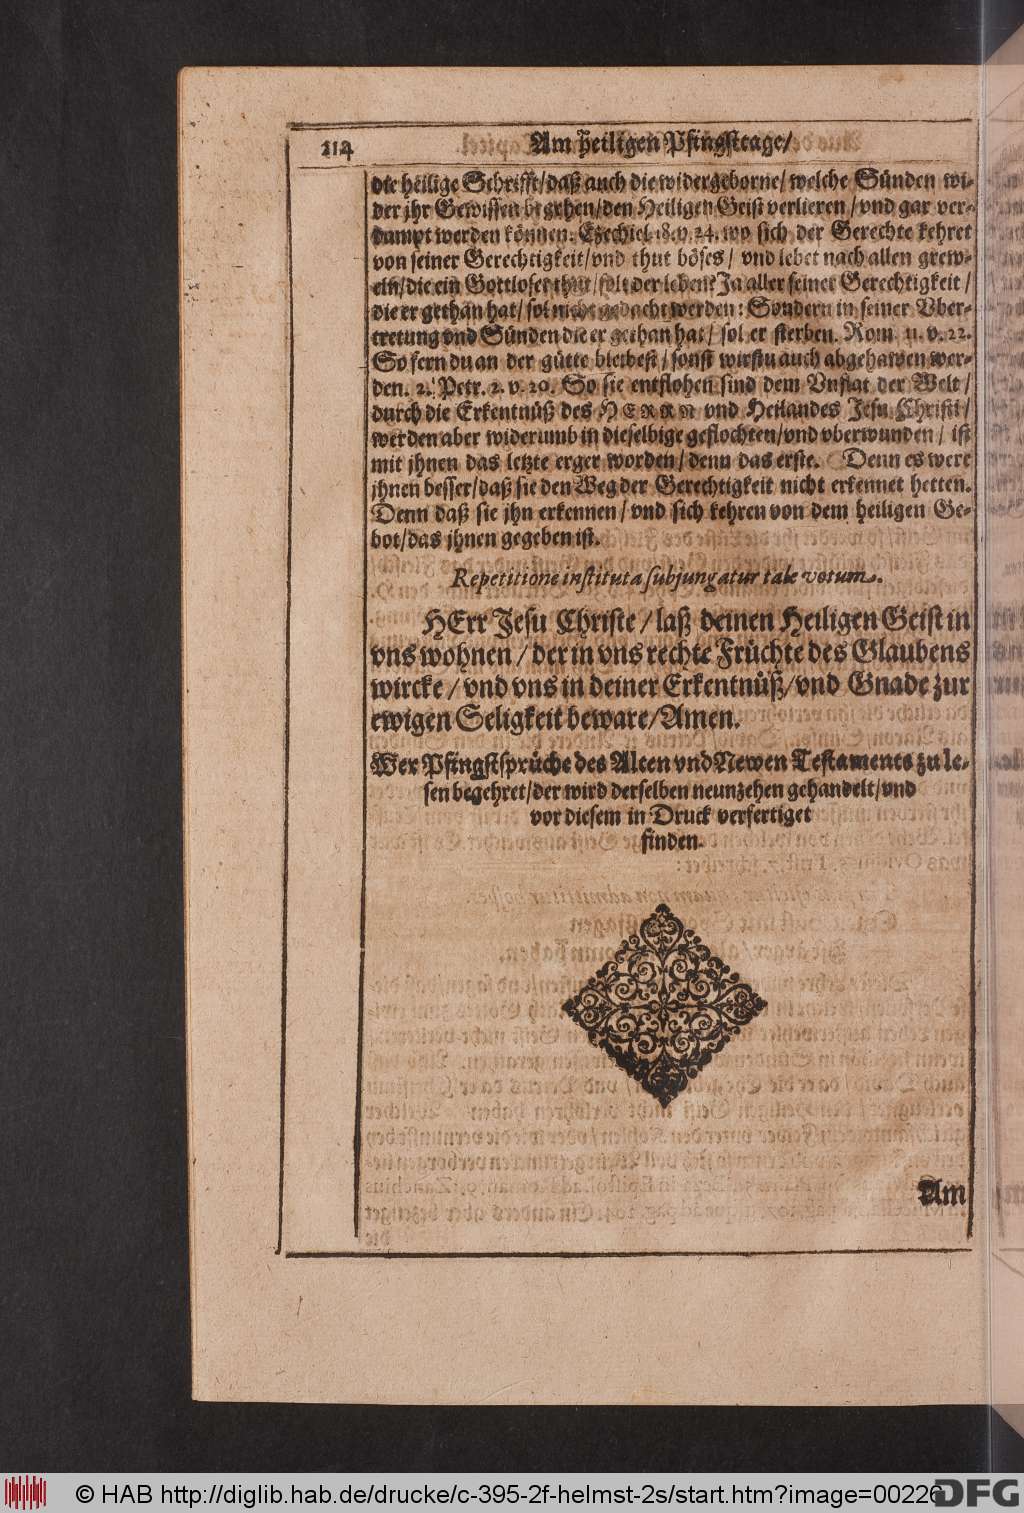 214
Am heiligen Pfingsttage/
die heilige Schrifft/daß auch die widergeborne/welche Sünden wi-
der jhr Gewissen begehen/den Heiligen Geist verlieren/vnd gar ver-
dampt werden können. Ezechiel. 18. v. 24. wo sich der Gerechte kehret
von seiner Gerechtigkeit/vnd thut böses/ vnd lebet nach allen grew-
eln/die ein Gottloser thut/solt der leben? Ja aller seiner Gerechtigkeit/
die er gethan hat/sol nicht gedacht werden: Sondern in seiner Vber-
tretung vnd Sünden die er gethan hat/ sol er sterben. Rom. 11. v. 22.
So fern du an der gütte bleibest/sonst wirstu auch abgehawen wer-
den. 2. Petr. 2. v. 20. So sie entflohen sind dem Vnflat der Welt/
durch die Erkentnüß des HERRN vnd Heilandes Jesu Christi/
werden aber widerumb in dieselbige geflochten/vnd vberwunden/ ist
mit jhnen das letzte erger worden/denn das erste. Denn es were
jhnen besser/daß sie den Weg der Gerechtigkeit nicht erkennet hetten.
Denn daß sie jhn erkennen/vnd sich kehren von dem heiligen Ge-
bot/das jhnen gegeben ist.
Repetitione instituta subjungatur tale votum.
HErr Jesu Christe/laß deinen Heiligen Geist in
vns wohnen/der in vns rechte Früchte des Glaubens
wircke/vnd vns in deiner Erkentnüß/vnd Gnade zur
ewigen Seligkeit beware/Amen.
Wer Pfingstsprüche des Alten vnd Newen Testaments zu le-
sen begehret/der wird derselben neunzehen gehandelt/vnd
vor diesem in Druck verfertiget
finden.
Am
© HAB http://diglib.hab.de/drucke/c-395-2f-helmst-2s/start.htm?image=00226
DFG